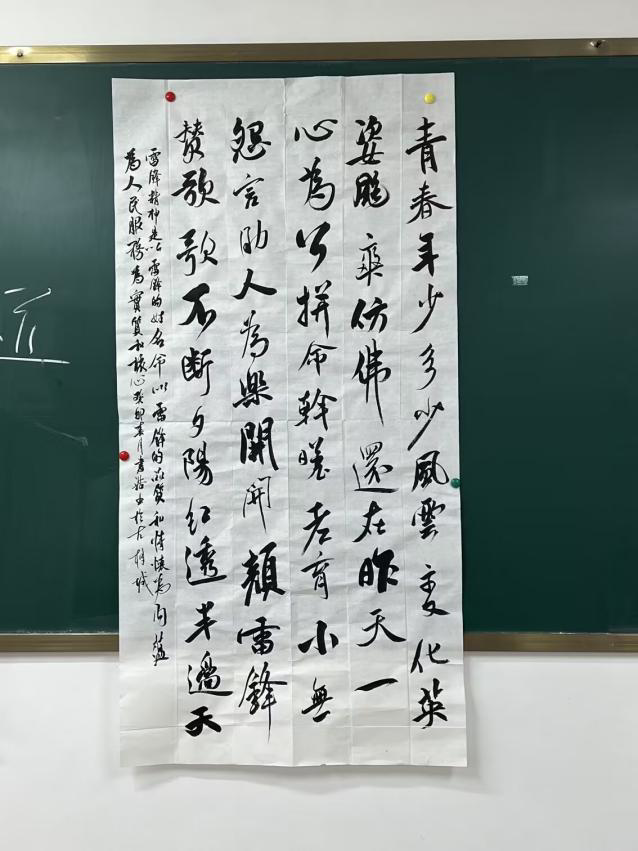 青春年少多少風雲變化英
姿颯爽仿佛還在昨天一
心為公拼命幹哪老育小無
怨言助人為樂開開顏雷鋒
贊歌歌不斷夕陽紅透半邊天
雷鋒精神是以雷鋒的姓名命以雷鋒的品質和情懷為內蘊
為人民服務為實質和核心癸卯春月書於古